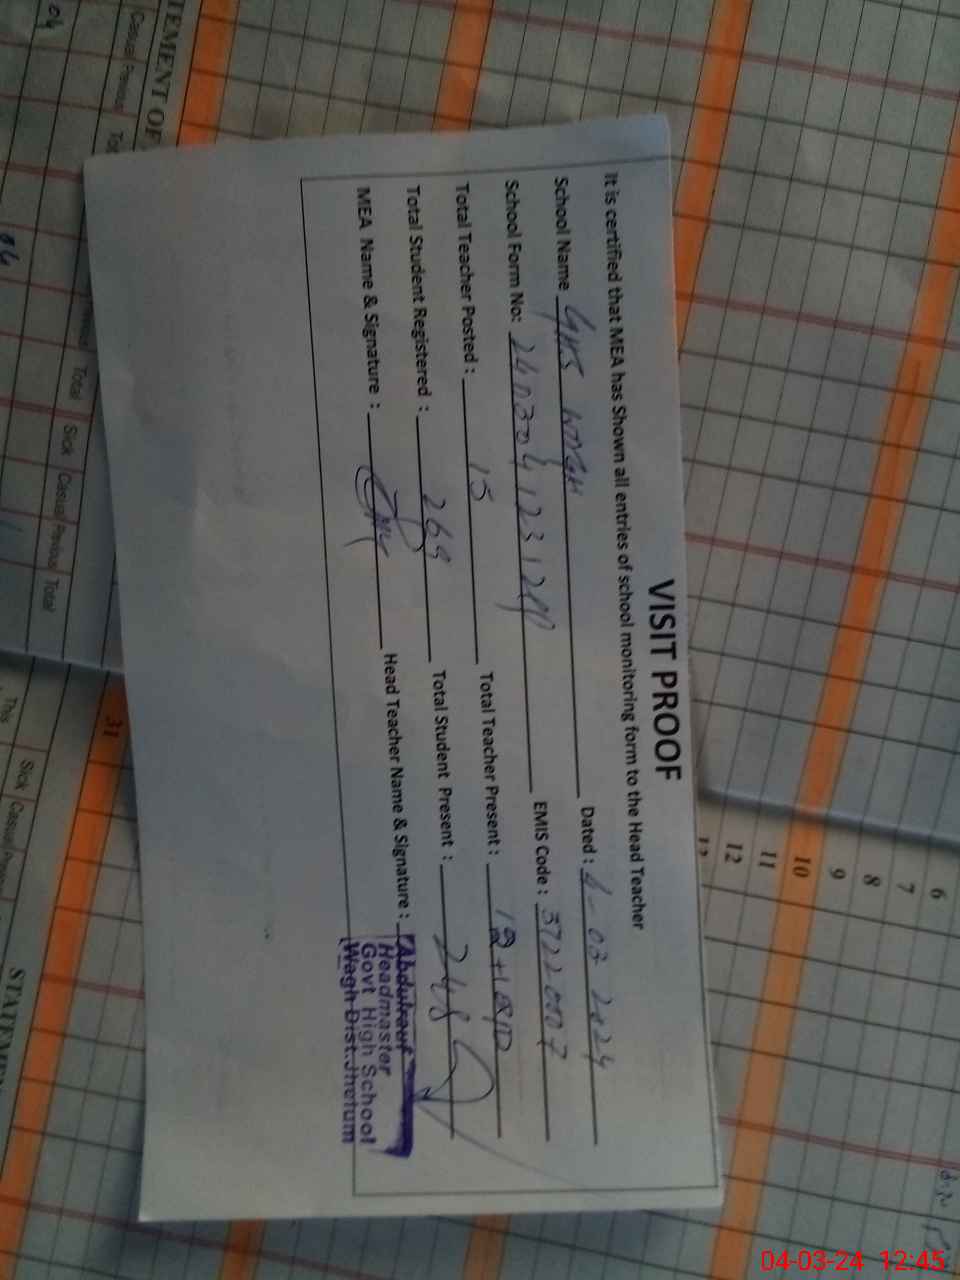 VISIT PROOF
It is certified that MEA has Shown all entries of school monitoring form to the Head Teacher
School Name GHS WAGH Dated : 4-03-2024
School Form No: EMIS Code :
Total Teacher Posted : 15 Total Teacher Present :
Total Student Registered : 269 Total Student Present : 248
MEA Name & Signature : Head Teacher Name & Signature :
Abdulrauf
Headmaster
Govt High School
Wagh Dist. Jhelum
TEMENT OF
Casual Previous
Total Sick Casual Previous Total
31
This
Sick Casual
STATEMENT
6
7
8
9
10
11
12
04-03-24 12:45